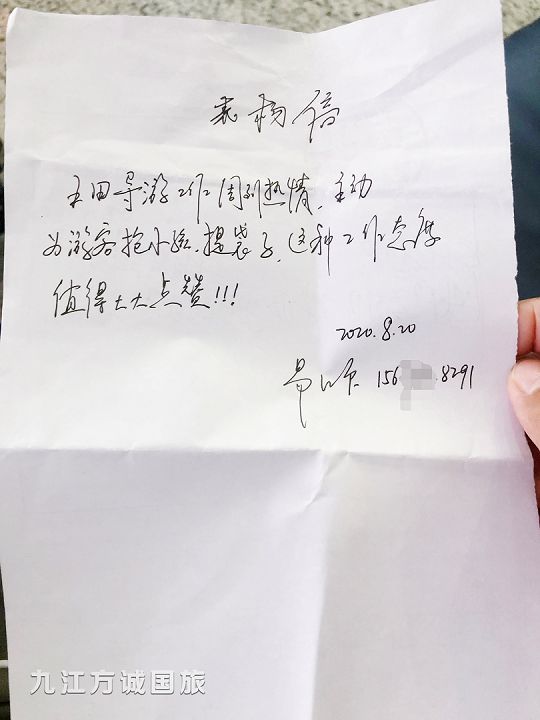 表扬信
王田导游工作周到热情，主动
为游客抱小孩、提袋子，这种工作态度
值得大大点赞!!!
2020.8.20
156 8291
九江方诚国旅